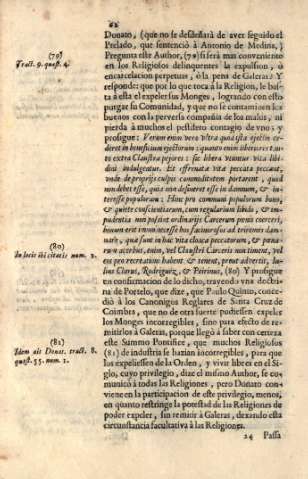 62
Donato, (que no se desdeñará de aver seguido el
Prelado, que sentenció à Antonio de Medina,)
(79)
Tract. 9. quæst. 4.
Pregunta este Author, (79) si será mas conveniente
en los Religiosos delinquentes la expulsion, ò
encarcelacion perpetuas, ò la pena de Galeras? Y
responde: que por lo que toca à la Religion, le bas-
ta à esta el expeler sus Monges, logrando con esto
purgar su Comunidad, y que no se contaminen los
buenos con la perversa compañia de los malos, ni
pierda à muchos el pestifero contagio de vno: y
prosigue: Verum enim vero vltra quà ista ejectio ce-
deret in beneficium ejectorum: quanto enim liberiores mul-
to extra Claustra pejores: sic libera vtuntur vita libi-
dini indulgentes. Et effrenata vita peccata peccant,
vnde de proprijs culpis commoditatem portarent, quod
non debet esse, quia non desineret esse in damnum, & in-
teresse populorum: Hinc pro communi populorum bono,
& quiete conscientiarum, cum regularium libido, & im-
pudentia non possint ordinarijs Carcerum pœnis coerceri,
binum erit immò necesse hos facinorosos ad triremes dam-
nari, quæ sunt in hac vita cloaca peccatorum, & pœna-
rum acerbior, enim, vel Claustri Carceris nutriment, vel
eos pro recreatione habent & tenent, prout advertit, Ju-
(80)
In locis ibi citatis num. 2.
lius Clarus, Rodriguez, & Peirinus, (80) Y prosigue
en confirmacion de lo dicho, trayendo vna doctrina
de Portelo, que dize, que Paulo Quinto, conce-
diò à los Canonigos Reglares de Santa Cruz de
Coimbra, que no de otra suerte pudiessen expeler
los Monges incorregibles, sino para efecto de re-
mitirlos à Galeras, porque llegò à saber con certeza
este Summo Pontifice, que muchos Religiosos
(81)
Idem ait Donat. tract. 8.
quæst. 55. num. 1.
(81) de industria se hazian incorregibles, para que
los expeliessen de la Orden, y vivir libres en el Si-
glo, cuyo privilegio, dize el mismo Author, se co-
municò à todas las Religiones, pero Donato con-
viene en la participacion de este privilegio, menos,
en quanto restringe la potestad de las Religiones de
poder expeler, sin remitir à Galeras, dexando esta
circunstancia facultativa à las Religiones.
24 Passa